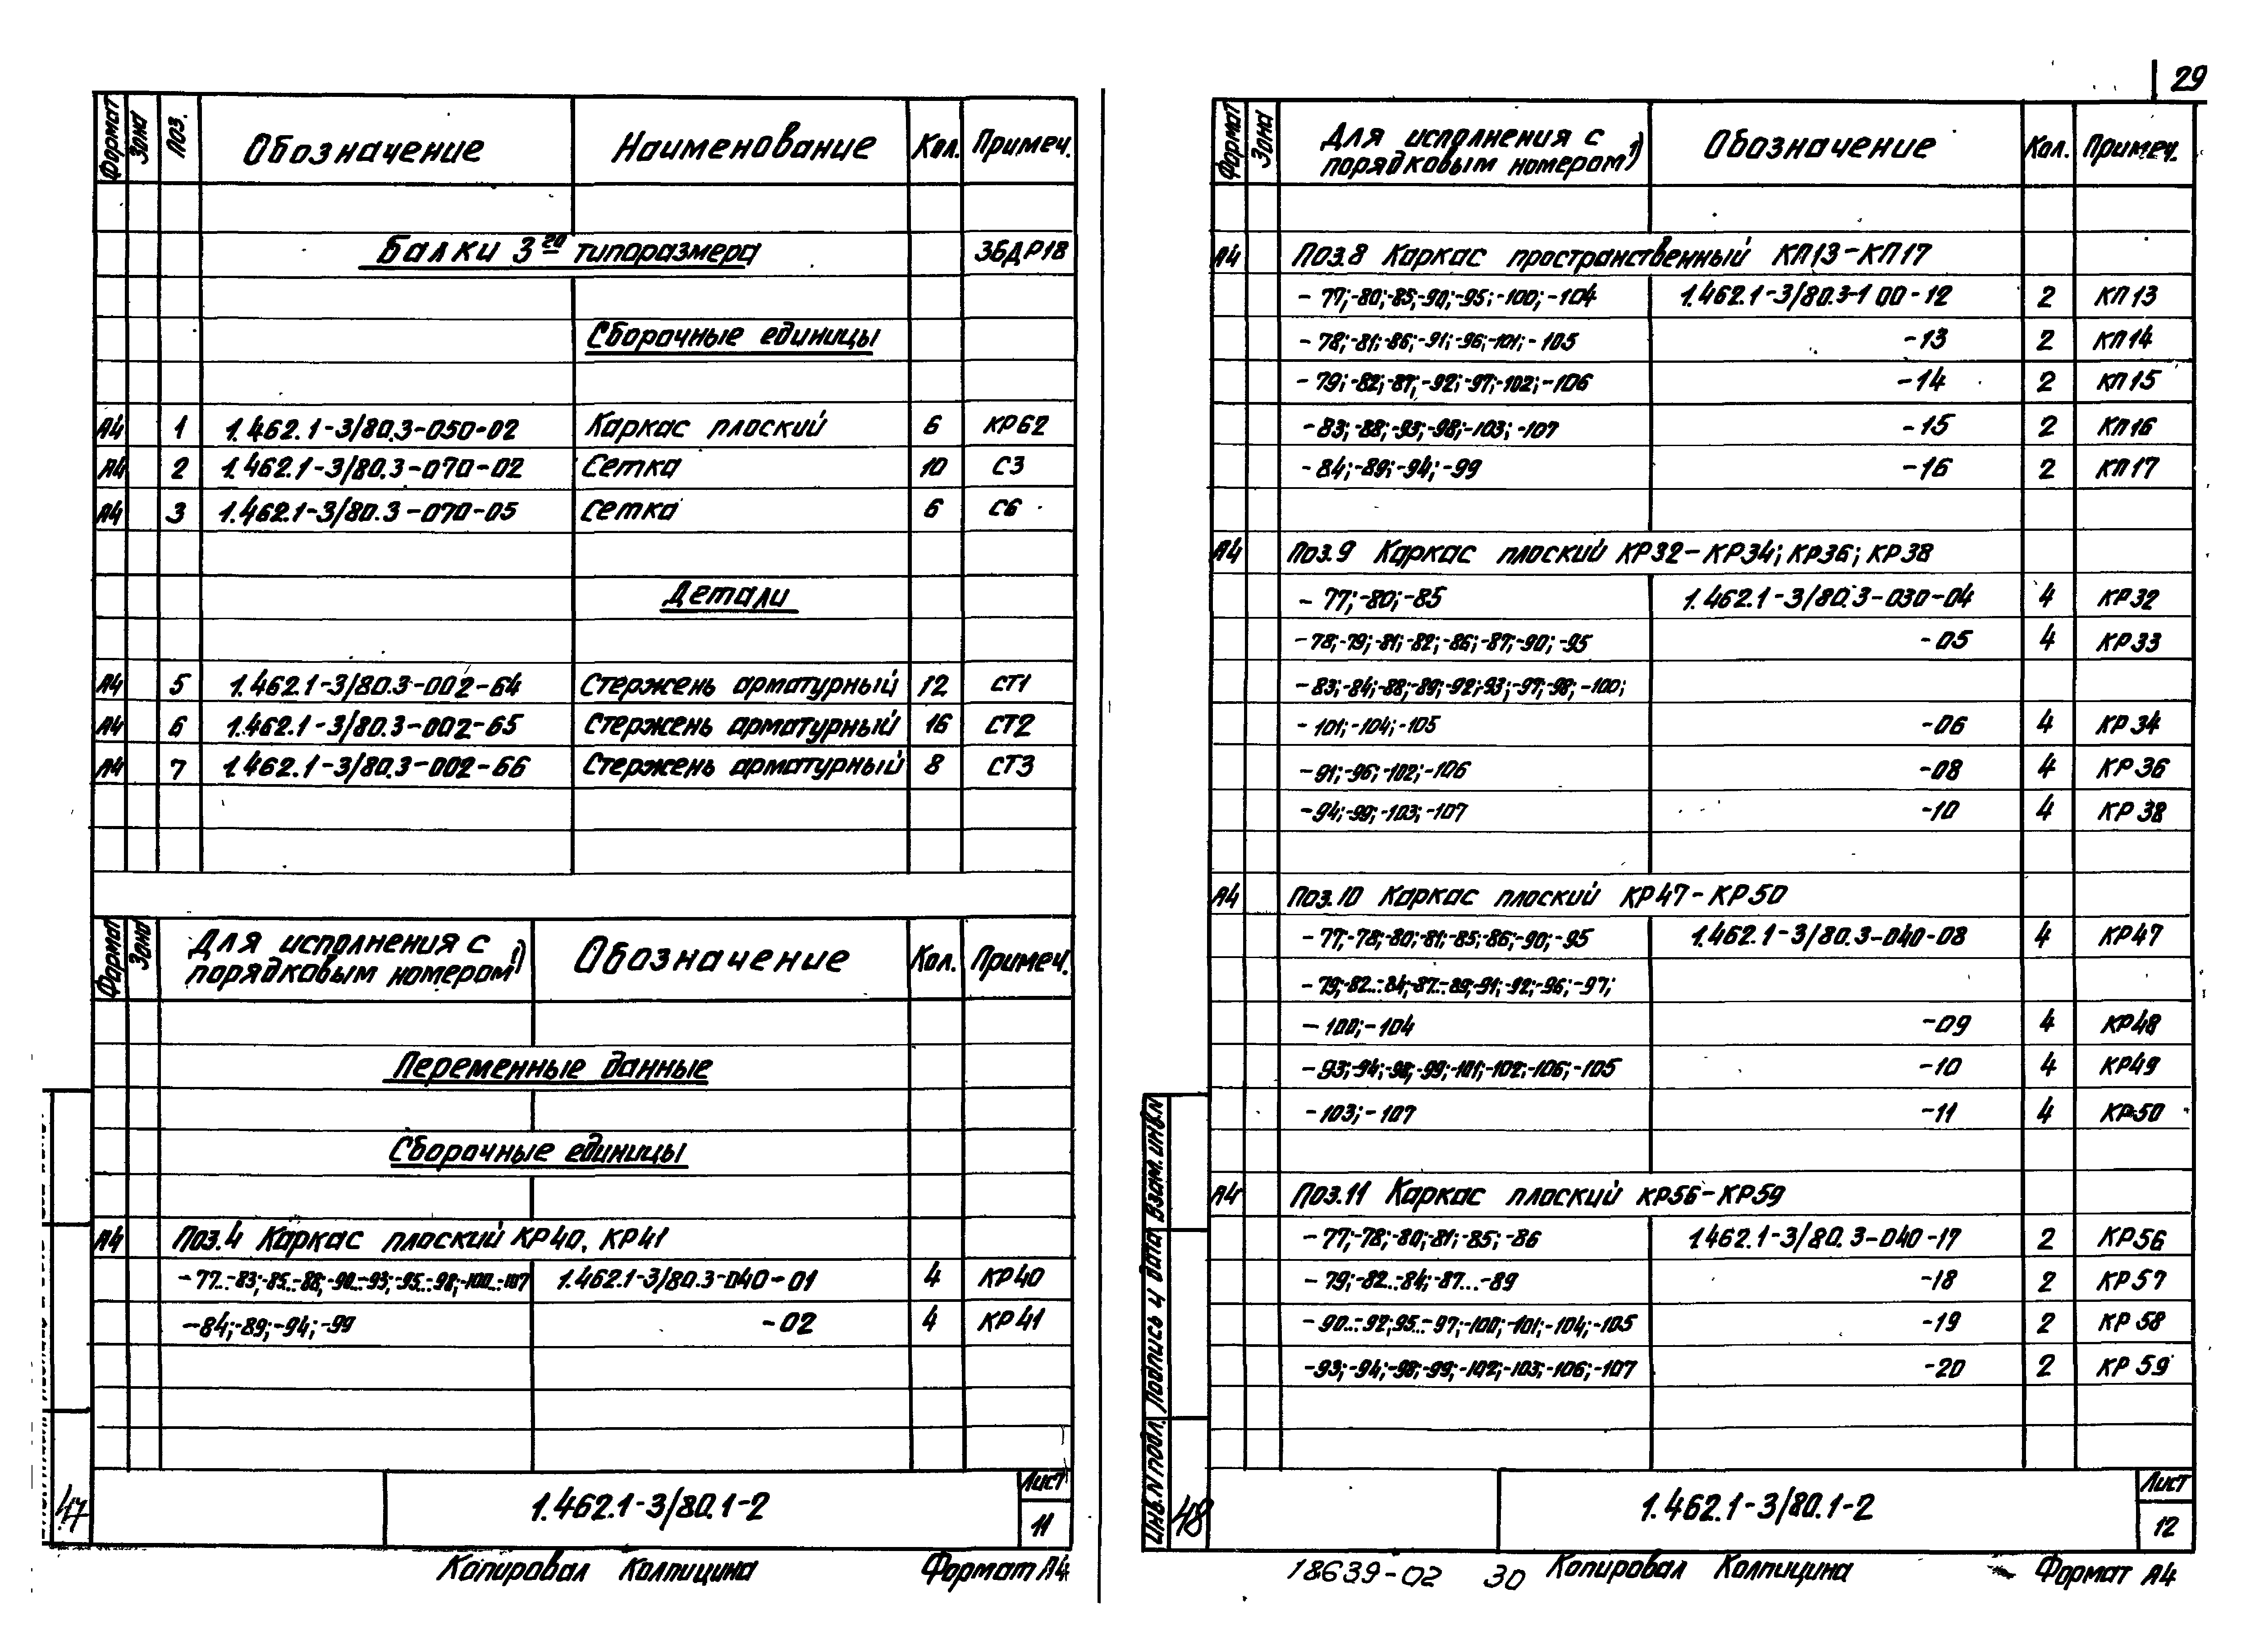 29
Формат Зона Поз. Обозначение Наименование Кол. Примеч.
Балки 3го типоразмера 3БДР18
Сборочные единицы
А4 1 1.462.1-3/80.3-050-02 Каркас плоский 6 КР62
А4 2 1.462.1-3/80.3-070-02 Сетка 10 С3
А4 3 1.462.1-3/80.3-070-05 Сетка 6 С6
Детали
А4 5 1.462.1-3/80.3-002-64 Стержень арматурный 12 СТ1
А4 6 1.462.1-3/80.3-002-65 Стержень арматурный 16 СТ2
А4 7 1.462.1-3/80.3-002-66 Стержень арматурный 8 СТ3
Формат Зона Для исполнения с порядковым номером 1) Обозначение Кол. Примеч.
Переменные данные
Сборочные единицы
А4 Поз.4 Каркас плоский КР40, КР41
-77...-83;-85...-88;-90...-93;-95...-98;-100...-107 1.462.1-3/80.3-040-01 4 КР40
-84;-89;-94;-99 -02 4 КР41
47
1.462.1-3/80.1-2
Лист
11
Копировал Колпицина Формат А4
Формат Зона Для исполнения с порядковым номером 1) Обозначение Кол. Примеч.
А4 Поз.8 Каркас пространственный КП13-КП17
-77;-80;-85;-90;-95;-100;-104 1.462.1-3/80.3-100-12 2 КП13
-78;-81;-86;-91;-96;-101;-105 -13 2 КП14
-79;-82;-87;-92;-97;-102;-106 -14 2 КП15
-83;-88;-93;-98;-103;-107 -15 2 КП16
-84;-89;-94;-99 -16 2 КП17
А4 Поз.9 Каркас плоский КР32-КР34; КР36; КР38
-77;-80;-85 1.462.1-3/80.3-030-04 4 КР32
-78;-79;-81;-82;-86;-87;-90;-95 -05 4 КР33
-83;-84;-88;-89;-92;-93;-97;-98;-100;
-101;-104;-105 -06 4 КР34
-91;-96;-102;-106 -08 4 КР36
-94;-99;-103;-107 -10 4 КР38
А4 Поз.10 Каркас плоский КР47-КР50
-77;-78;-80;-81;-85;-86;-90;-95 1.462.1-3/80.3-040-08 4 КР47
-79;-82...-84;-87...-89;-91;-92;-96;-97;
-100;-104 -09 4 КР48
-93;-94;-98;-99;-101;-102;-106;-105 -10 4 КР49
-103;-107 -11 4 КР50
А4 Поз.11 Каркас плоский КР56-КР59
-77;-78;-80;-81;-85;-86 1.462.1-3/80.3-040-17 2 КР56
-79;-82...-84;-87...-89 -18 2 КР57
-90...-92;95...-97;-100;-101;-104;-105 -19 2 КР58
-93;-94;-98;-99;-102;-103;-106;-107 -20 2 КР59
Инв.N подл. Подпись и дата Взам.инв.N
48
1.462.1-3/80.1-2
Лист
12
18639-02 30 Копировал Колпицина Формат А4